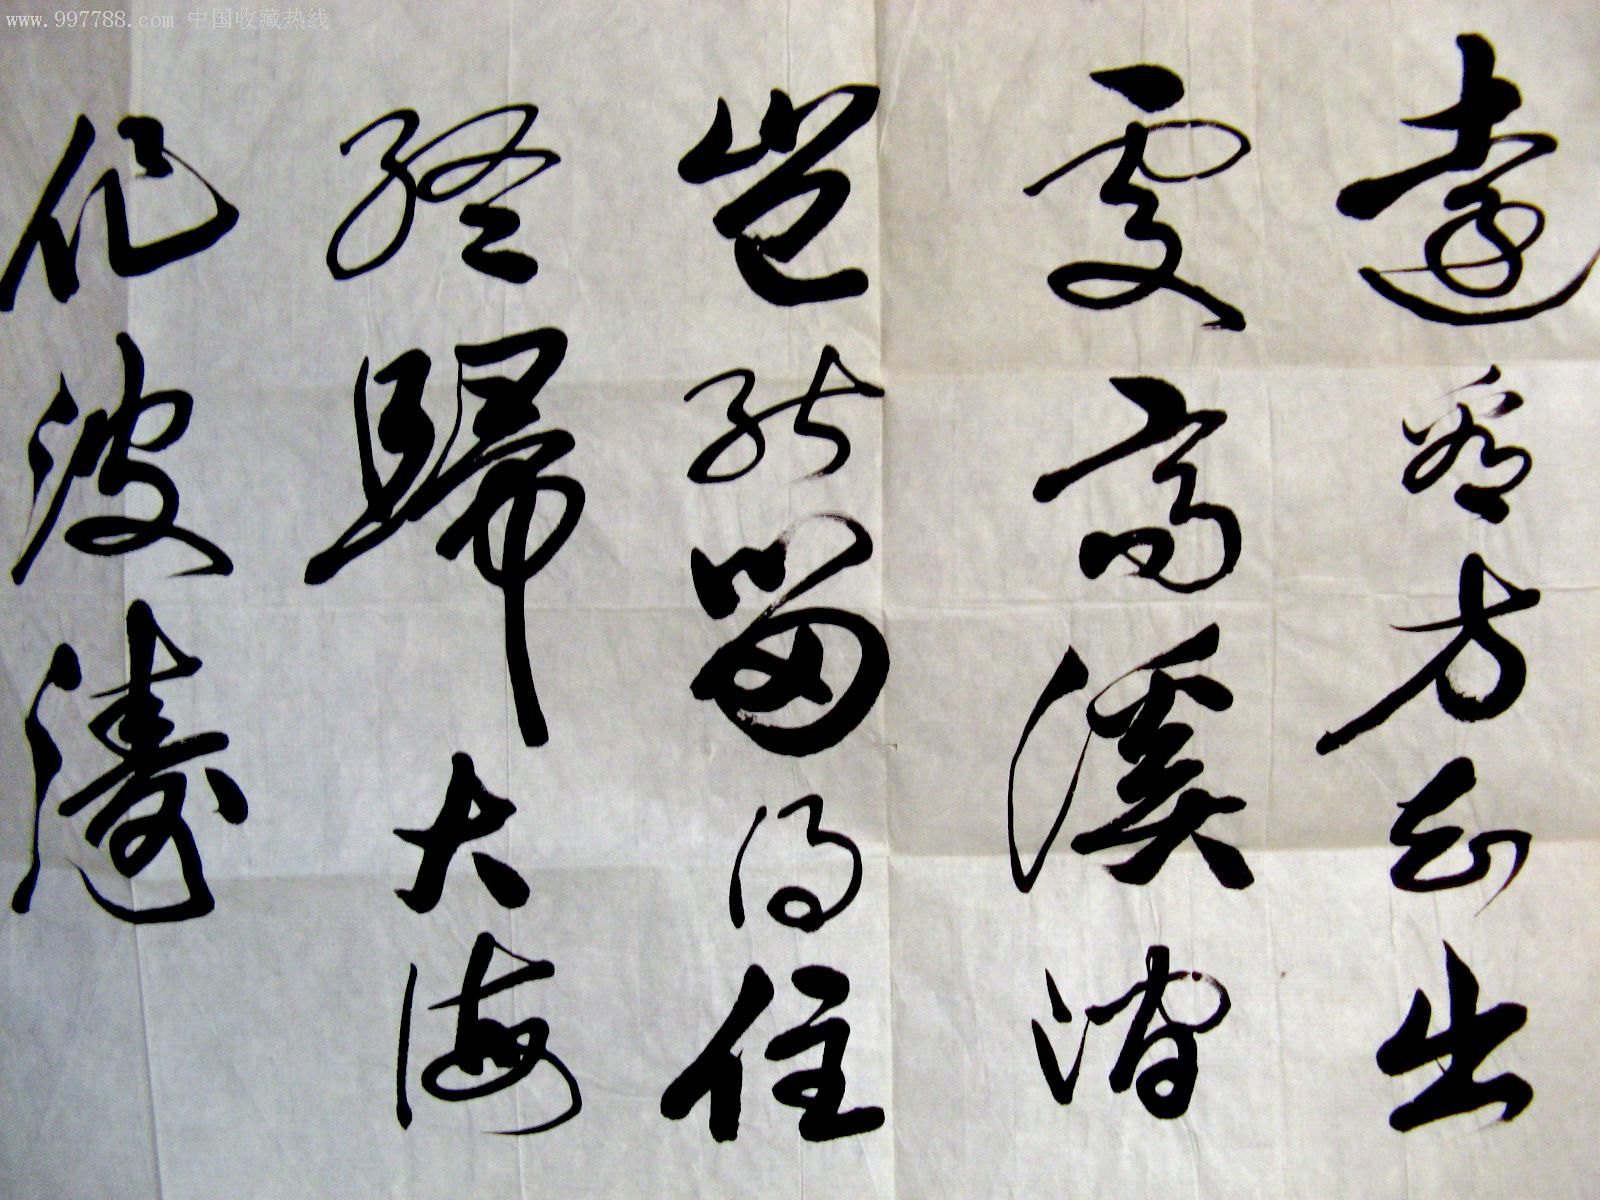 www.997788.com 中国收藏热线
遠看方知出
處高溪澗
豈能留得住
終歸大海
作波濤